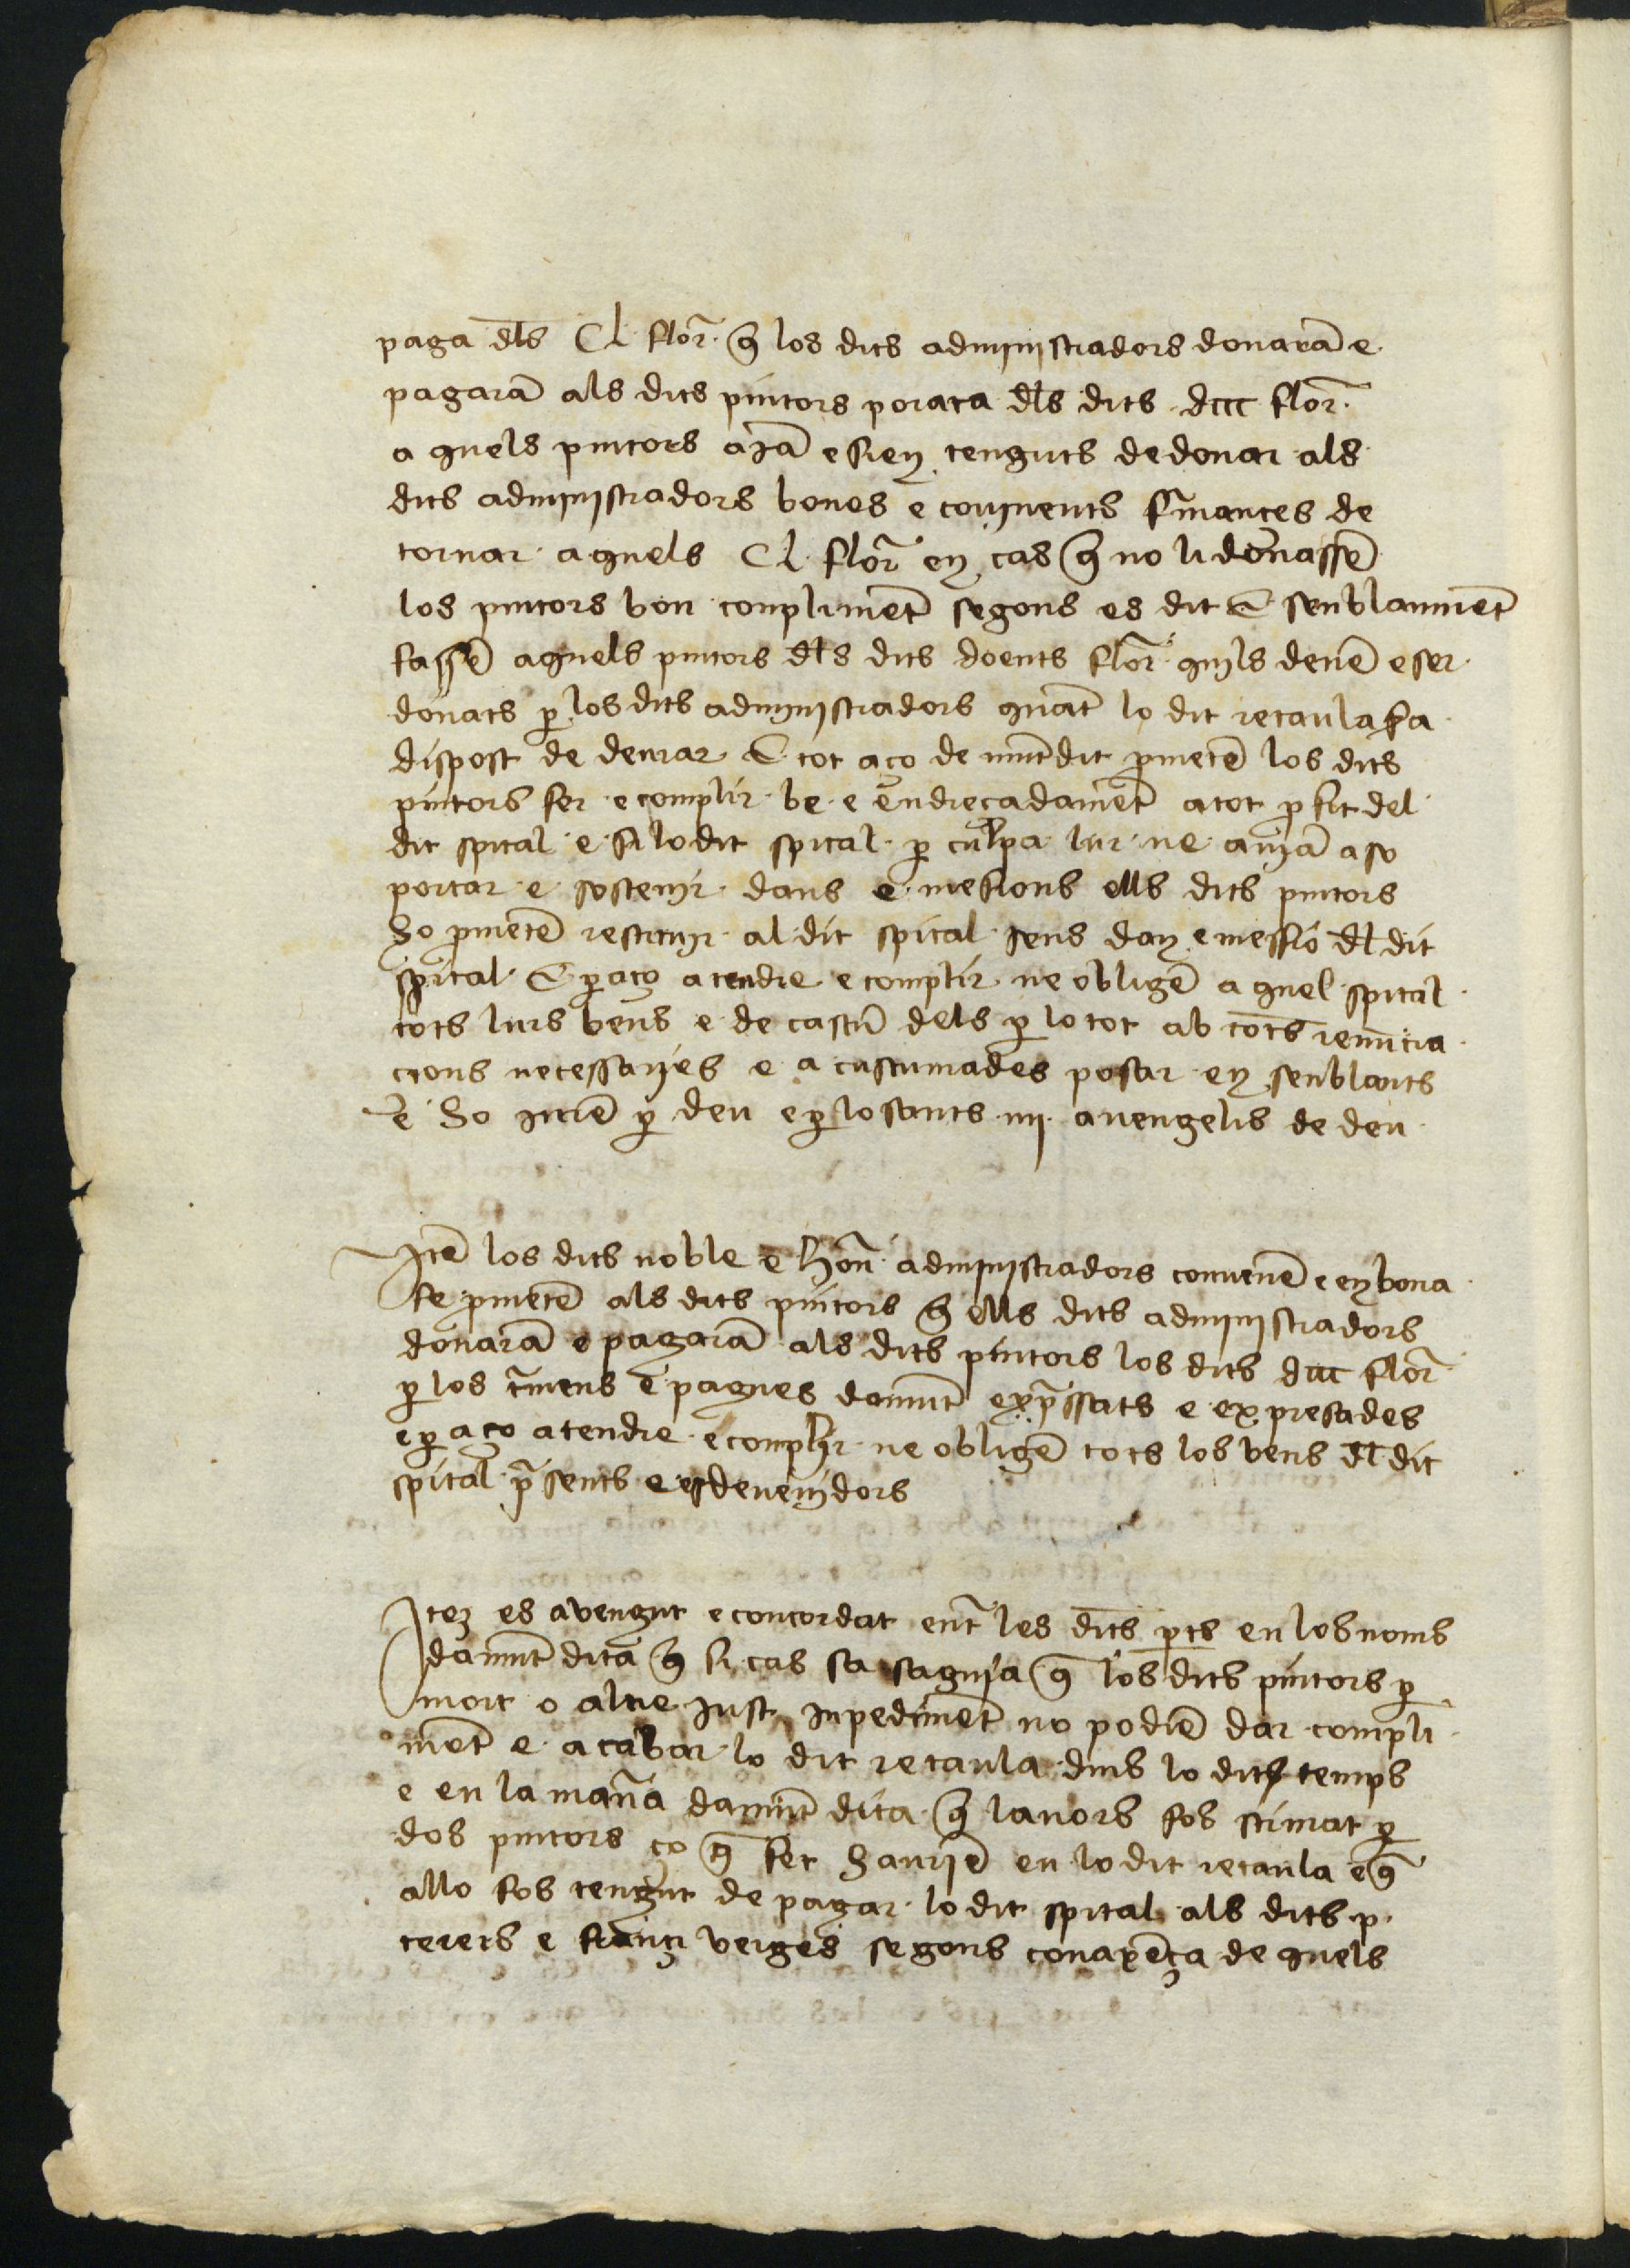 paga dl̄s CL florꝫ. q̄ los dits administradors donarā e
pagarā als dits pintors porata dl̄s dits dccc florꝫ.
a quels pintors ajā e sien tenguts de donar als
dits administradors bones e convinents fm̄ances de
tornar aquels CL florꝫ en cas q̄ no li donassē
los pintors bon conplimēt segons es dit E senblantmēt
fassē aquels pintors dl̄s dits doents florꝫ quils deuē eser
donats ꝑ los dits administradors quāt lo dit retaula sia
dispost de deurar E tot aço de mūtdit ꝓmetē los dits
pintors fer e complir be e endreçadamēt a tot ꝓfit del
dit spital e si lo dit spital ꝑ culpa lur ne auiā a so
portar e sostenir dans e mesions ells dits pintors
ho ꝓmetē restituir al dit spital sens dan e messio dl̄ dit
spital E ꝑ aço atendre e complir ne obligē a quel spital
tots lurs bens e de cascū dels ꝑ lo tot ab totes renūcia
cions necessaries e acustumades posar en senblants
e ho jurē ꝑ deu e ꝑ los sants iiij auengelis de deu
Itē los dits noble e hon̄ administradors conuenē e en bona
fe ꝓmetē als dits pintors q̄ ells dits administradors
donarā e pagarā als dits pintors los dits dccc florꝫ
ꝑ los t̄mens e pagues damūt exp̄ssats e expresades
e ꝑ aço atendre e complir ne obligē tots los bens dl̄ dit
spital p̄sents e esdeuenidors
Iteꝫ es avengut e concordat ent̄ les dites ꝑts en los noms
damūt dita q̄ si cas sa saguia q̄ los dits pintors ꝑ
mort o altre just inpedimēt no podiē dar compli
mēt e acabar lo dit retaula dins lo dit temps
e en la mana̅ damūt dita q̄ lauors fos stimat ꝑ
dos pintors ço q̄ fet hauriē en lo dit retaula e q̄
allo fos tengut de pagar lo dit spital als dits p
terers e franci verges segons conaxēça de quels